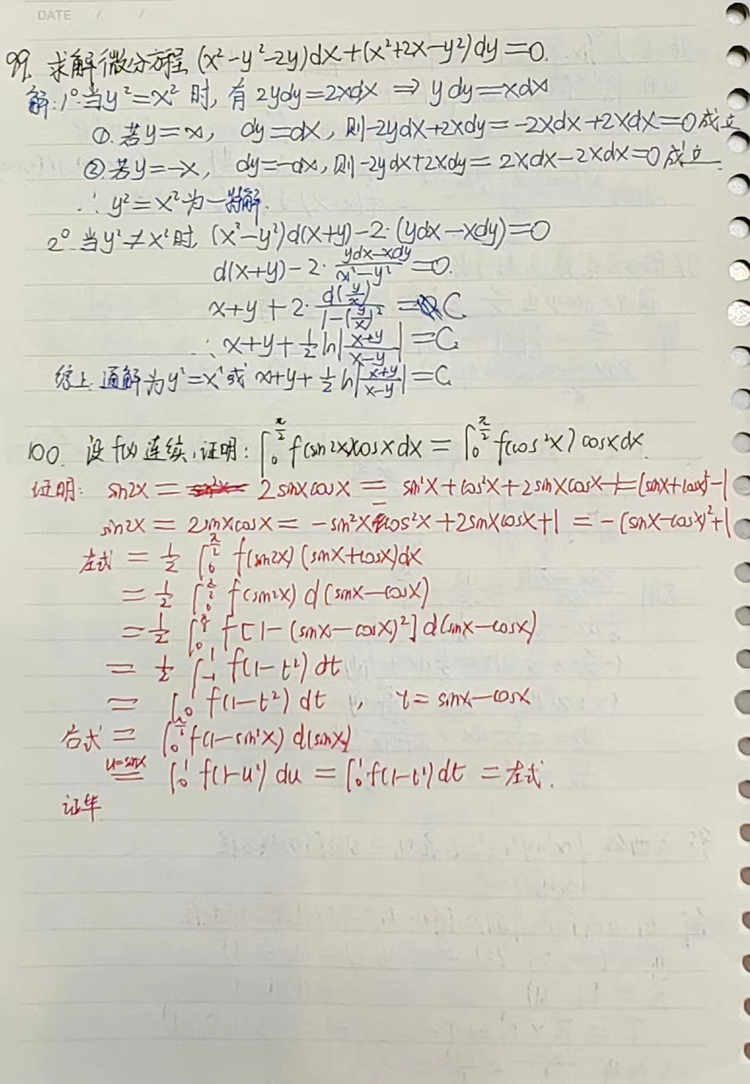 DATE / /
99. 求解微分方程 (x²-y²-2y)dx+(x²+2x-y²)dy=0.
解: 1° 当y²=x²时, 有 2ydy=2xdx ⇒ ydy=xdx
①. 若y=x, dy=dx, 则-2ydx+2xdy=-2xdx+2xdx=0成立
②. 若y=-x, dy=-dx, 则-2ydx+2xdy=2xdx-2xdx=0成立.
∴ y²=x²为一特解.
2° 当y²≠x²时, (x²-y²)d(x+y)-2·(ydx-xdy)=0
d(x+y)-2·\frac{ydx-xdy}{x²-y²}=0.
x+y+2·\frac{d(\frac{y}{x})}{1-(\frac{y}{x})²}=C
∴ x+y+\frac{1}{2}ln|\frac{x+y}{x-y}|=C
综上: 通解为y²=x²或 x+y+\frac{1}{2}ln|\frac{x+y}{x-y}|=C
100. 设f(x)连续, 证明: ∫_0^{\frac{π}{2}} f(sin2x)cosxdx=∫_0^{\frac{π}{2}} f(cos²x)cosxdx.
证明: sin2x=2sinxcosx=sin²x+cos²x+2sinxcosx-1=(sinx+cosx)²-1
sin2x=2sinxcosx=-sin²x-cos²x+2sinxcosx+1=-(sinx-cosx)²+1
左式=\frac{1}{2}∫_0^{\frac{π}{2}} f(sin2x)(sinx+cosx)dx
=\frac{1}{2}∫_0^{\frac{π}{2}} f(sin2x)d(sinx-cosx)
=\frac{1}{2}∫_0^{\frac{π}{2}} f[1-(sinx-cosx)²]d(sinx-cosx)
=\frac{1}{2}∫_{-1}^1 f(1-t²)dt
=∫_0^1 f(1-t²)dt, t=sinx-cosx
右式=∫_0^{\frac{π}{2}} f(1-sin²x)d(sinx)
\overset{u=sinx}{=} ∫_0^1 f(1-u²)du=∫_0^1 f(1-t²)dt=左式.
证毕